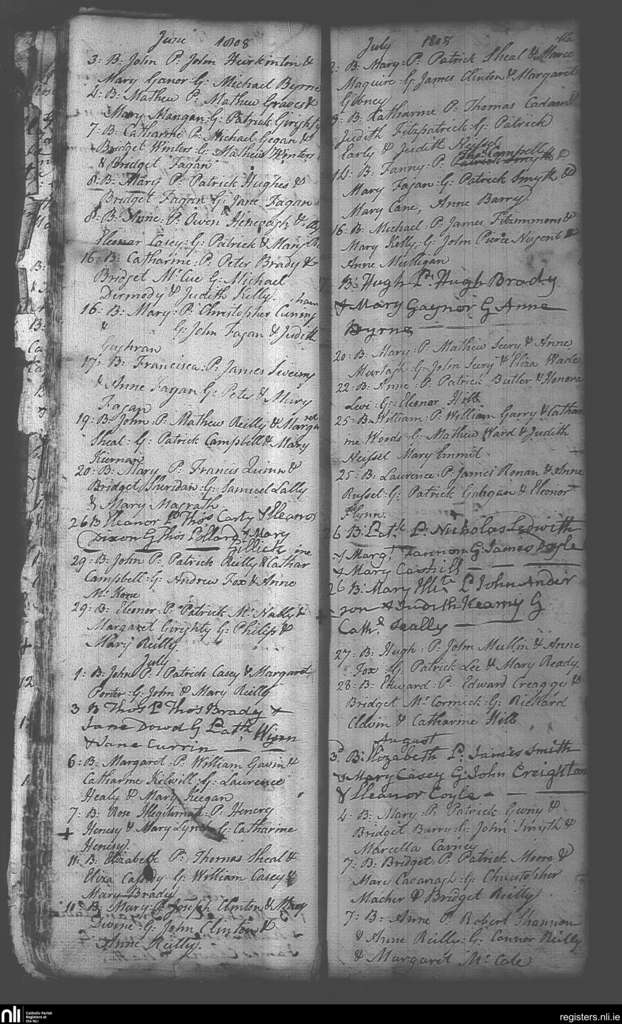 June 1808
3: B: John P: John Hurkinton &
Mary Ganor G: Michael Byrne
4: B: Mathew P: Mathew Graves &
Mary Mangan: G: Patrick Girighty
7: B: Catharine P: Michael Gegan &
Bridget Winters G: Mathew Winters
& Bridget Fagan
8: B: Mary P: Patrick Hughes &
Bridget Fagan G: Jane Fagan
8: B: Anne: P: Owen &
Eleanor Casey: G: Patrick & Mary
16: B: Catharine: P: Peter Brady &
Bridget McCue G: Michael
Dermody & Judith Kelly
16: B: Mary: P: Christopher Cunny
G: John Fagan & Judith
17: B: Francisca P: James Sweeny
& Anne Fagan G: Peter & Mary
Fagan
19: B: John P: Mathew Reilly & Marga
ret
Sheal: G: Patrick Campbell & Mary
Kiernan
20: B: Mary P: Francis Quinn &
Bridget Sheridan G: Samuel Lally
& Mary Magrath
26 B Eleanor P Thos Carty & Eleanor
Dixon G Thos Pollard & Mary
Gillick
29: B: John P: Patrick Reilly & Cathar
ine
Campbell: G: Andrew Fox & Anne
Mc Kone
29: B: Elenor: P: Patrick Mc Nally &
Margaret Girighty G: Philip &
Mary Reilly
July
1: B: John P: Patrick Casey & Margaret
Porter G: John & Mary Reilly
3 B Thos P Thos Brady &
Jane Dowd G Patk Wynn
& Jane Currin
6: B: Margaret P: William Gavin &
Catharine Kelwill: G: Laurence
Healy & Mary Keegan
7: B: Rose Illegitimate P: Henery
Henesy & Mary Lynch G: Catharine
Henesy
11: B: Elizabeth P: Thomas Sheal &
Eliza Cassidy G: William Casey &
Mary Brady
11: B: Mary: P: Joseph Clinton & Mary
G: John Clinton &
Anne Reilly.
July 1808
2: B: Mary: P: Patrick Sheal & Marce
Maguire: G: James Clinton & Margaret
Gibney
8: B: Katharine P: Thomas
Judith Fitzpatrick: G: Patrick
Early & Judith
14: B: Fanny: P: Campbell
Mary Fagan: G: Patrick Smyth &
Mary Cane, Anne Barry
16: B: Michael P: James Fitzimmons &
Mary Kelly: G: John Pierce Nugent &
Anne Mulligan
B: Hugh P: Hugh Brady
& Mary Gaynor G Anne
Byrne
20: B: Mary: P: Mathew Seery & Anne
Murtagh G: John Seery & Eliza Wade
22: B: Anne: P: Patrick Butler & Honora
Levi: G: Eleanor Hill
25: B: William: P: William Garry & Cathar
ine Woods: G: Mathew Ward & Judith
Mary
25: B: Laurence P: James Ronan & Anne
Russel: G: Patrick Gahgan & Eleonor
Flynn
26 B: Patk P Nicholas Ledwith
& Margt Fannon G James Doyle
& Mary
26 B: Mary P: John Ander
son & Judith Kearny G
Cath: Scally
27: B: Hugh: P: John Mullin & Anne
Fox: G: Patrick Lee & Mary Ready
28: B: Edward: P: Edward Creaggs &
Bridget Mc Cormick: G: Richard
& Catharine Hill
August
3d B: Elizabeth P: James Smith
& Mary Casey G: John Creighton
& Eleanor Coyle
4: B: Mary: P: Patrick &
Bridget Barry: G: John Smyth &
Marcella Carney
7: B: Bridget P: Patrick Moore &
Mary Cavanagh: G: Christopher
Macher & Bridget Reilly
7: B: Anne P: Robert Shannon
& Anne Reilly: G: Connor Reilly
& Margaret Mc Cale
nli
Catholic Parish
Registers at
the NLI
registers.nli.ie